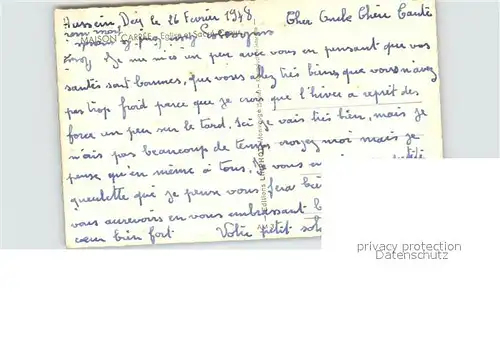 Hussein Dey le 26 Fevrier 1948
Cher Oncle Chère Tante
MAISON CARRÉE Eglise et
Je me mes un peu avec vous en pensant que vos
santés sont bonnes, que vous allez très bien que vous n'avez
pas trop froid parce que je crois que l'hiver a reprit des
force un peu sur le tard. Ici je vais très bien, mais je
n'ais pas beaucoup de temps croyez moi mais je
pense qu'en même à tous, Je vous
gueulette qui je pense vous fera
vous aurevoirs en vous embrassant
cœur bien fort Votre petit
Editions
privacy protection
Datenschutz